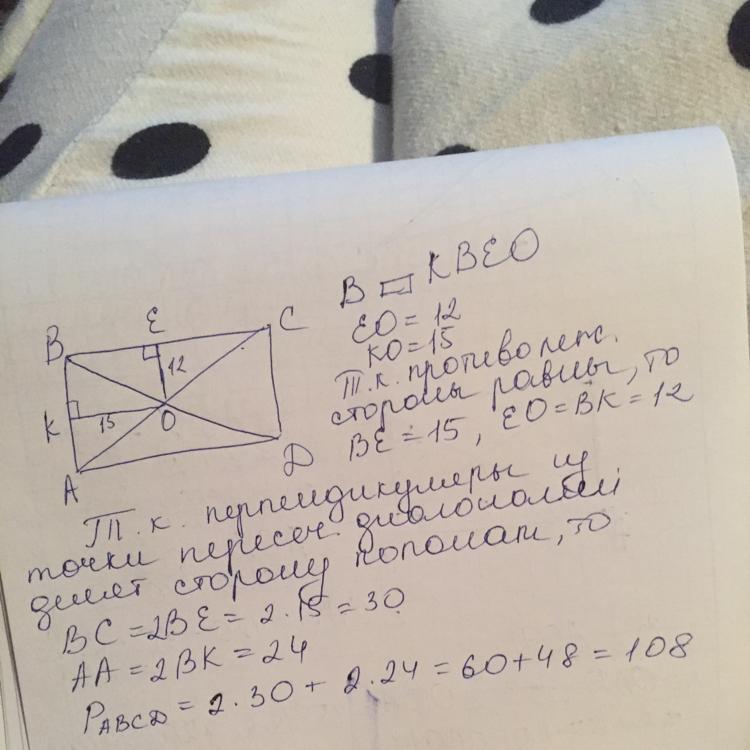 B E C
12
K 15 O
A D
В ▭ KBEO
EO = 12
KO = 15
Т.к. противолеж.
стороны равны, то
BE = 15, EO = BK = 12
Т.к. перпендикуляры из
точки пересеч. диагоналей
делят сторону пополам, то
BC = 2BE = 2·15 = 30
AA = 2BK = 24
P ABCD = 2·30 + 2·24 = 60 + 48 = 108